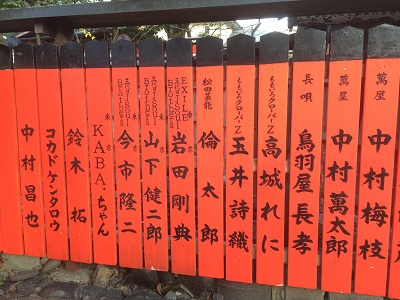 萬屋 中村梅枝
萬屋 中村萬太郎
長唄 鳥羽屋長孝
ももいろクローバーZ 高城れに
ももいろクローバーZ 玉井詩織
松田芸能 倫太郎
EXILE 三代目J Soul Brothers 岩田剛典
三代目J Soul Brothers 山下健二郎
三代目J Soul Brothers 今市隆二
KABA.ちゃん
鈴木拓
コカドケンタロウ
中村昌也